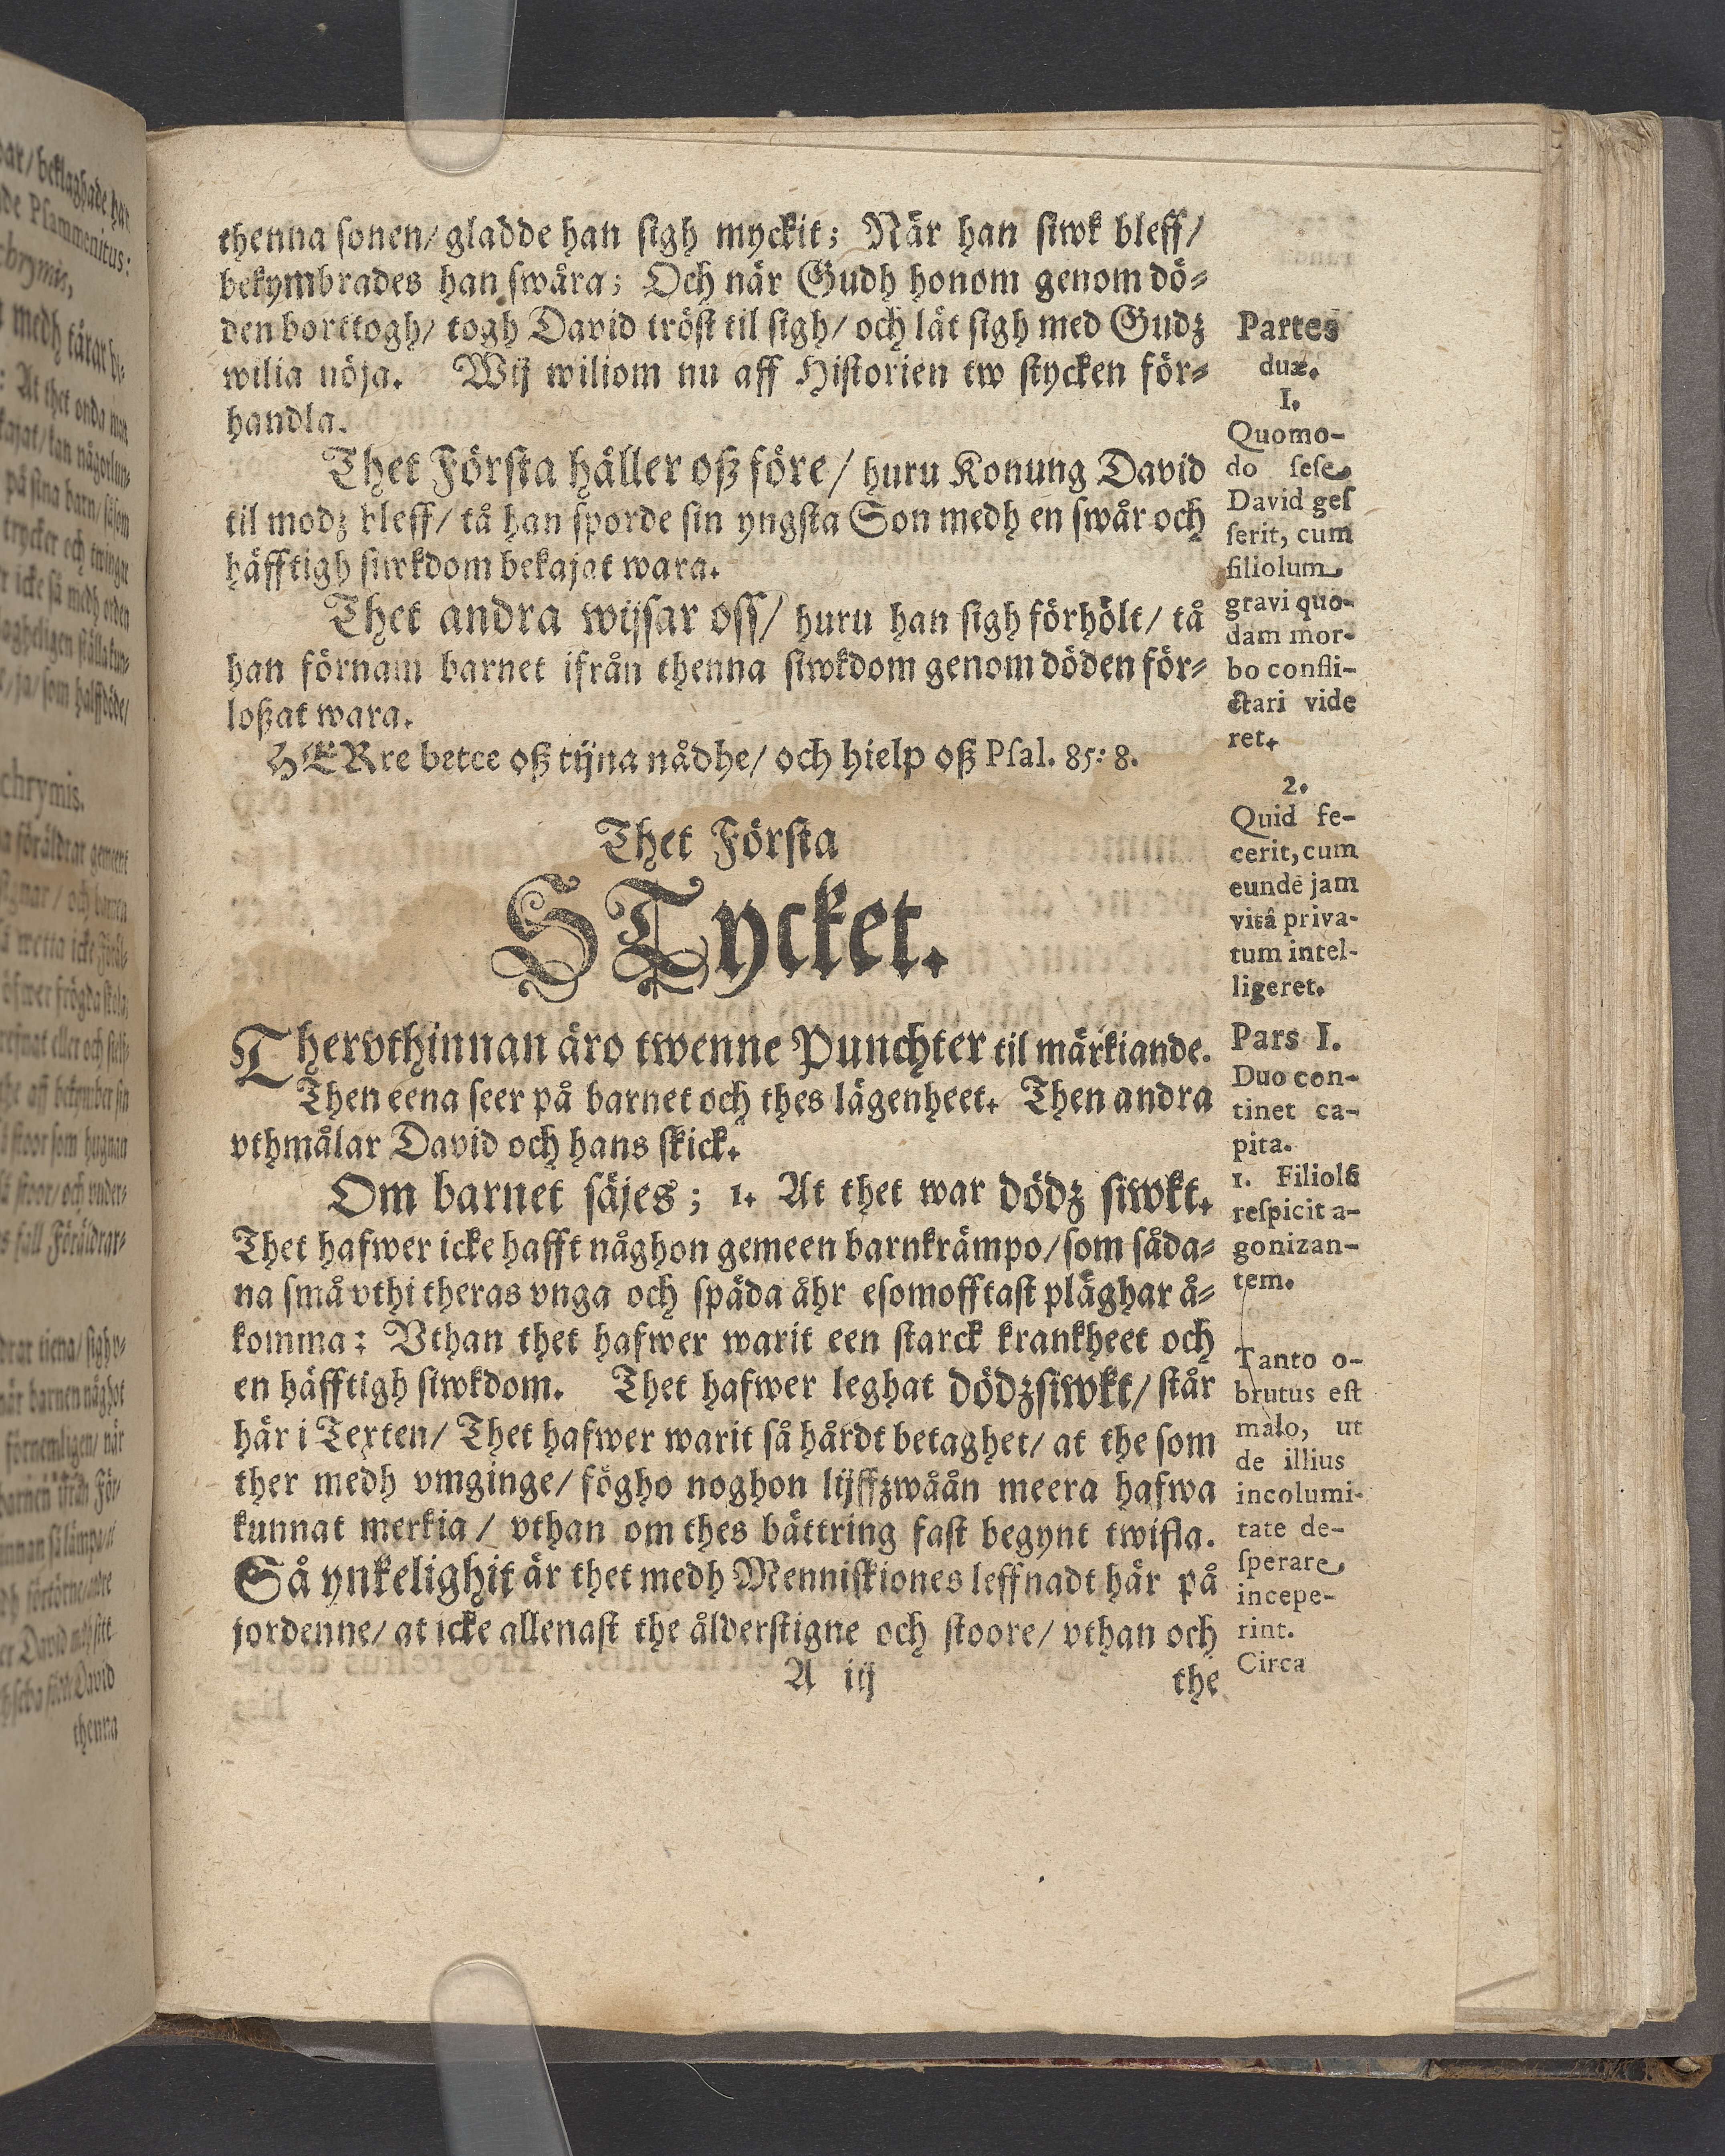 thenna sonen/ gladde han sigh myckit; När han siwk bleff/
bekymbrades han swåra; Och när Gudh honom genom dö-
den borttogh/ togh David tröst til sigh/ och lät sigh med Gudz
wilia nöja. Wij wiliom nu aff Historien tw stycken för-
handla.
Thet Första håller oß före/ huru Konung David
til modz bleff/ tå han sporde sin yngsta Son medh en swår och
häfftigh siwkdom bekajat wara.
Thet andra wijsar oss/ huru han sigh förhölt/ tå
han förnam barnet ifrån thenna siwkdom genom döden för-
loßat wara.
HERre betee oß tijna nådhe/ och hielp oß Psal. 85: 8.
Thet Första
STycket.
Thervthinnan äro twenne Punchter til märkiande.
Then eena seer på barnet och thes lägenheet. Then andra
vthmålar David och hans skick.
Om barnet säjes; 1. At thet war dödz siwkt.
Thet hafwer icke hafft någhon gemeen barnkrämpo/ som såda-
na små vthi theras vnga och späda åhr esomofftast pläghar å-
komma: Vthan thet hafwer warit een starck krankheet och
en häfftigh siwkdom. Thet hafwer leghat dödzsiwkt/ står
här i Texten/ Thet hafwer warit så hårdt betaghet/ at the som
ther medh vmginge/ fögho noghon lijffzwåån meera hafwa
kunnat merkia/ vthan om thes bättring fast begynt twifla.
Så ynkelighit är thet medh Menniskiones leffnadt här på
jordenne/ at icke allenast the ålderstigne och stoore/ vthan och
A iij
the
Partes
duæ.
I.
Quomo-
do sese
David ges
serit, cum
filiolum
gravi quo-
dam mor-
bo confli-
ctari vide
ret.
2.
Quid fe-
cerit, cum
eundē jam
vitâ priva-
tum intel-
ligeret.
Pars I.
Duo con-
tinet ca-
pita.
1. Filiolū
respicit a-
gonizan-
tem.
Tanto o-
brutus est
malo, ut
de illius
incolumi-
tate de-
sperare
incepe-
rint.
Circa